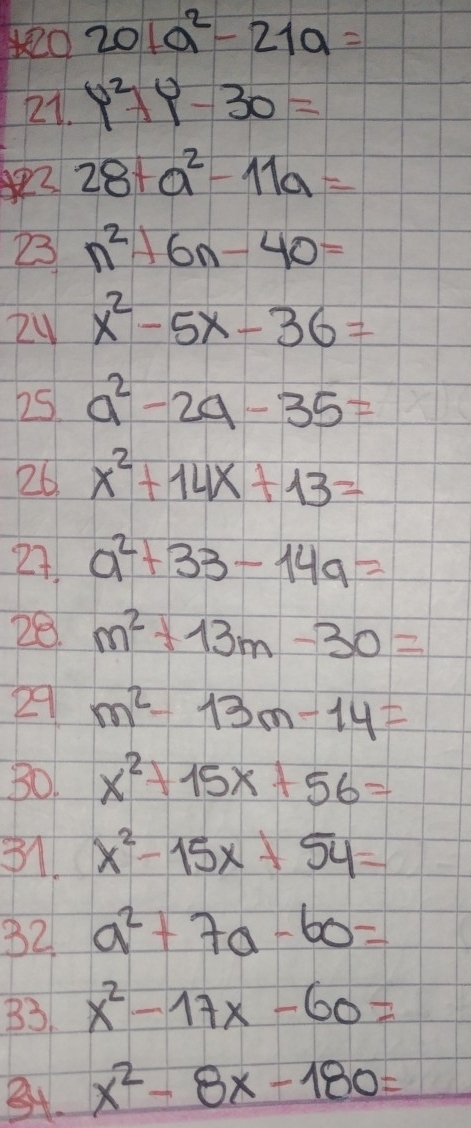 *20. 20+a²-21a=
21. y²+y-30=
*22. 28+a²-11a=
23. n²+6n-40=
24. x²-5x-36=
25. a²-2a-35=
26. x²+14x+13=
27. a²+33-14a=
28. m²+13m-30=
29. m²-13m-14=
30. x²+15x+56=
31. x²-15x+54=
32. a²+7a-60=
33. x²-17x-60=
34. x²-8x-180=